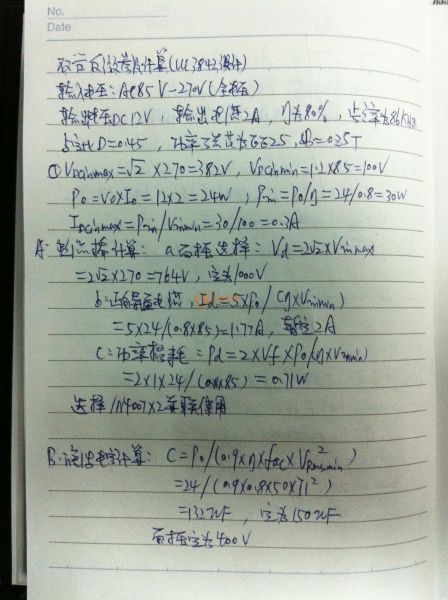 No.
Date
反激计算(UC3842设计)
输入电压:AC85V-270V(全电压)
输出电压DC12V,输出电流2A,η为80%,频率为86KHz
占空比D=0.45,功率磁芯为EE25,=0.25T
① VDCinmax=√2×270=382V,VDCinmin=1.2×85=100V
Po=Vo×Io=12×2=24W,Pin=Po/η=24/0.8=30W
IDCinmax=Pin/Vinmin=30/100=0.3A
A:选择计算:a耐压选择:Vd=2√2×Vinmax
=2√2×270=764V,定为1000V
b:正向导通电流,Id=5×Po/(η×Vinmin)
=5×24/(0.8×85)=1.77A,暂定2A
C:功率损耗:Pd=2×Vf×Po/(η×Vinmin)
=2×1×24/(0.8×85)=0.71W
选择IN4007×2并联使用
B:电容计算:C=Po/(0.9×η×fac×VRmsmin²)
=24/(0.9×0.8×50×71²)
=132uF,定为150uF
耐压定为400V